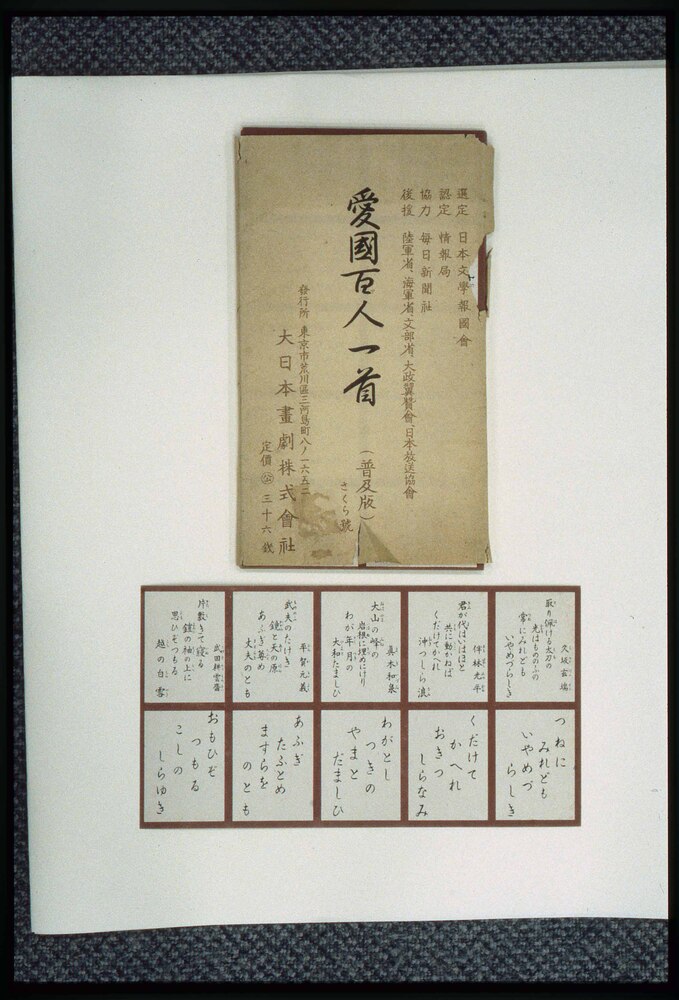 選定 日本文學報國會
認定 情報局
協力 毎日新聞社
後援 陸軍省、海軍省、文部省、大政翼賛會、日本放送協會
愛國百人一首
(普及版)
さくら號
發行所 東京市荒川區三河島町八ノ一六五三
大日本畫劇株式會社
定價 公 三十六錢
久坂玄瑞
取り佩ける太刀の
光はもののふの
常にみれども
いやめづらしも
伴林光平
君が代はいはほと
共に動かねば
くだけてかへれ
沖つしら浪
真木和泉
大山の峰の
岩根に埋めにけり
わが年月の
大和だましひ
平賀元義
武夫のたけき
鏡と天の原
あふぎ尊め
丈夫のとも
武田耕雲齋
片敷きて寝る
鎧の袖の上に
思ひぞつもる
越の白雪
つねに
みれども
いやめづ
らしき
くだけて
かへれ
おきつ
しらなみ
わがとし
つきの
やまと
だましひ
あふぎ
たふとめ
ますらを
のとも
おもひぞ
つもる
こしの
しらゆき